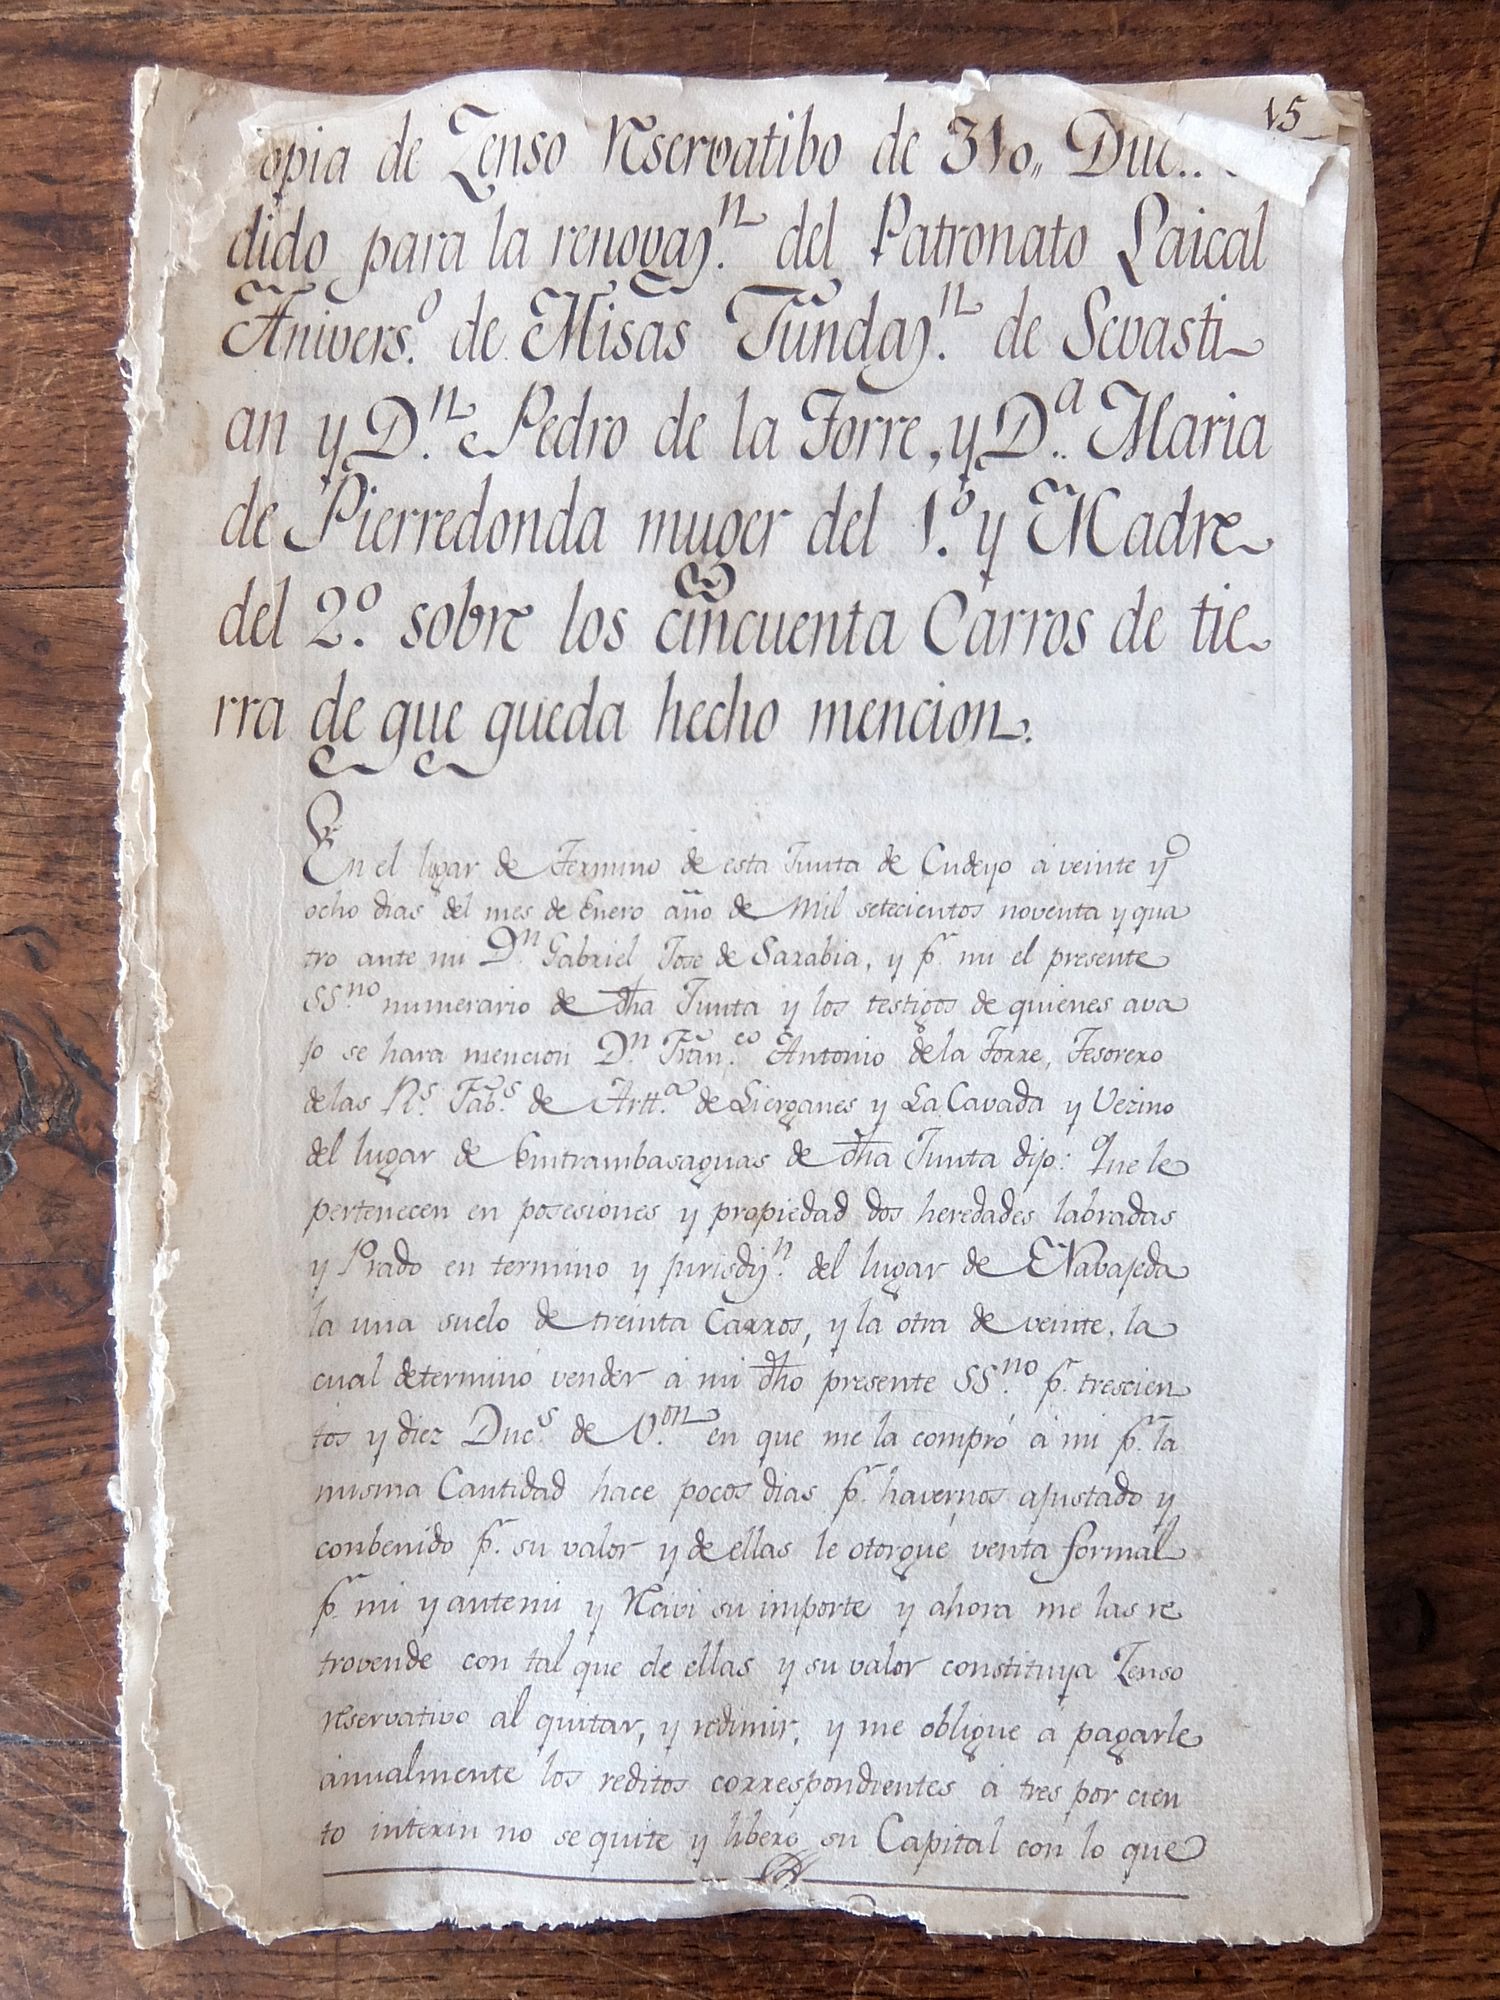 15
opia de Zenso Reservatibo de 310,, Duc..
dido para la renovaz.n del Patronato Laical
Anivers.o de Misas Fundaz.n de Sevasti-
an y D.n Pedro de la Torre, y D.a Maria
de Pierredonda muger del 1.o y Madre
del 2.o sobre los cincuenta Carros de tie-
rra de que queda hecho mencion.
En el lugar de Termino de esta Junta de Cudeyo á veinte y
ocho dias del mes de Enero año de Mil setecientos noventa y qua
tro ante mi D.n Gabriel Jose de Sarabia, y p.r mi el presente
SS.no numerario de dha Junta y los testigos de quienes ava
jo se hara mencion D.n Fran.co Antonio de la Torre, Tesorero
de las R.s Fab.s de Artt.a de Lierganes y La Cavada y Vezino
del lugar de Entrambasaguas de dha Junta dijo: Que le
pertenecen en posesiones y propiedad dos heredades labradas
y Prado en termino y jurisdiz.n del lugar de Navajeda
la una suelo de treinta Carros, y la otra de veinte, la
cual determinó vender á mi dho presente SS.no p.r trescien
tos y diez Duc.s de V.on en que me la compró á mi p.r la
misma Cantidad hace pocos dias p.r havernos ajustado y
conbenido p.r su valor y de ellas le otorgué venta formal
p.r mi y ante mi y Reciví su importe y ahora me las re
trovende con tal que de ellas y su valor constituya Zenso
reservativo al quitar, y redimir, y me obligue á pagarle
anualmente los reditos correspondientes á tres por cien
to interin no se quite y libero su Capital con lo que